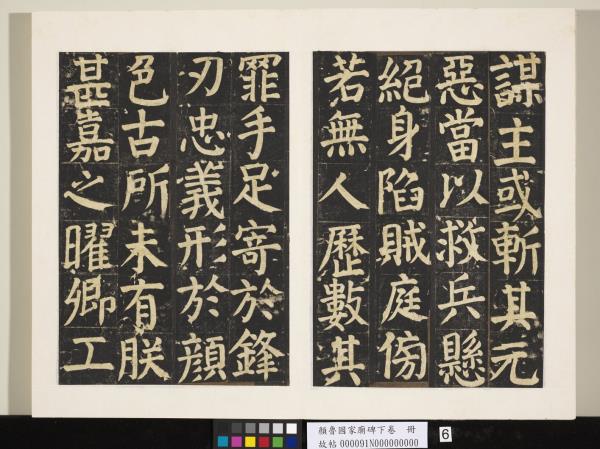 謀主或斬其元
惡當以救兵懸
絕身陷賊庭傍
若無人歷數其
罪手足寄於鋒
刃忠義形於顏
色古所未有朕
甚嘉之曜卿工
顏魯國家廟碑下卷 冊
故帖000091N000000000
6